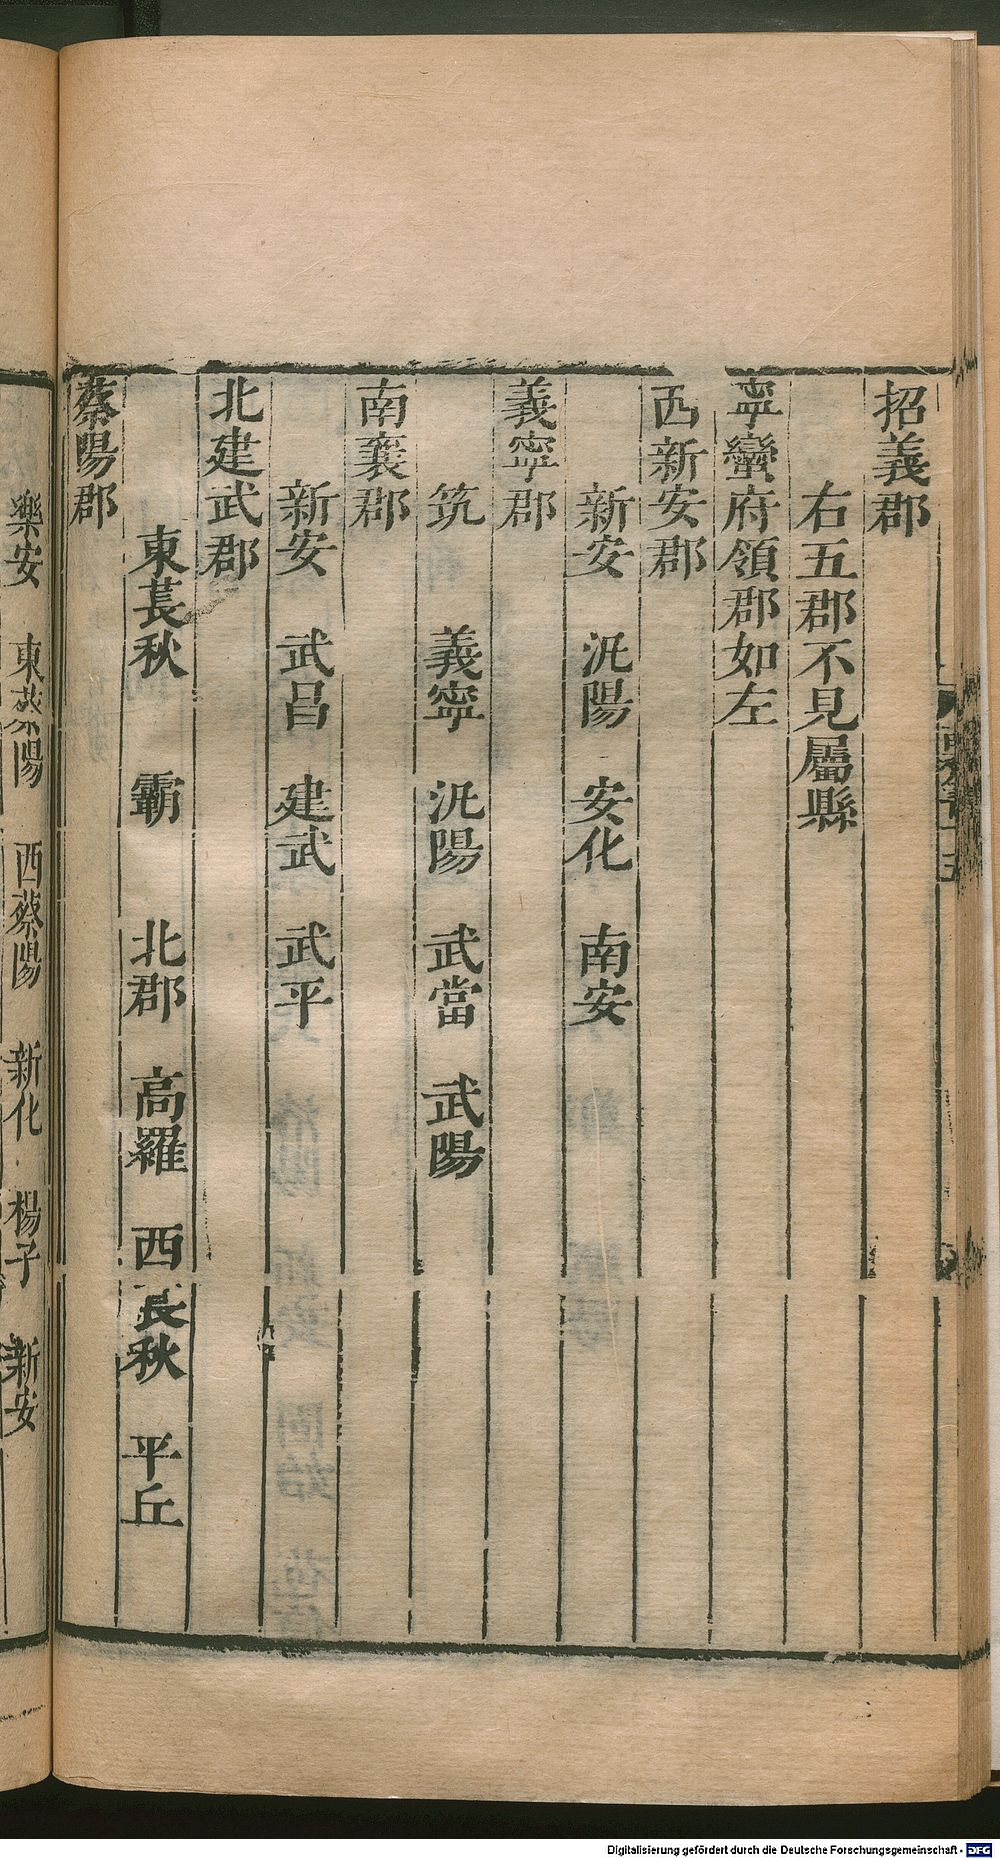 招義郡
右五郡不見屬縣
寧蠻府領郡如左
西新安郡
新安 汎陽 安化 南安
義寧郡
筑 義寧 汎陽 武當 武陽
南襄郡
新安 武昌 建武 武平
北建武郡
東萇秋 霸 北郡 高羅 西萇秋 平丘
蔡陽郡
樂安 東蔡陽 西蔡陽 新化 楊子 新安
Digitalisierung gefördert durch die Deutsche Forschungsgemeinschaft - DFG